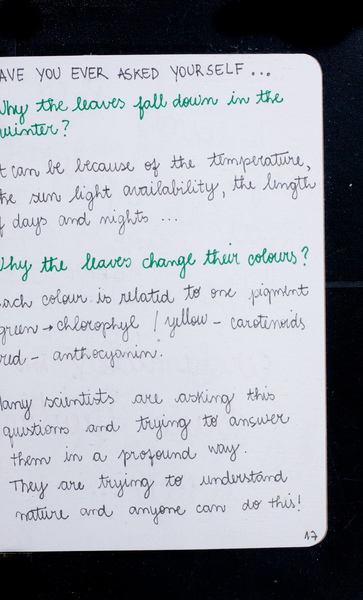 AVE YOU EVER ASKED YOURSELF...
Why the leaves fall down in the
winter?
t can be because of the temperature,
he sun light availability, the length
f days and nights ...
Why the leaves change their colours?
ach colour is related to one pigment
green → chlorophyl / yellow - carotenoids
red - anthocyanin.
Many scientists are asking this
questions and trying to answer
them in a profound way.
They are trying to understand
nature and anyone can do this!
17